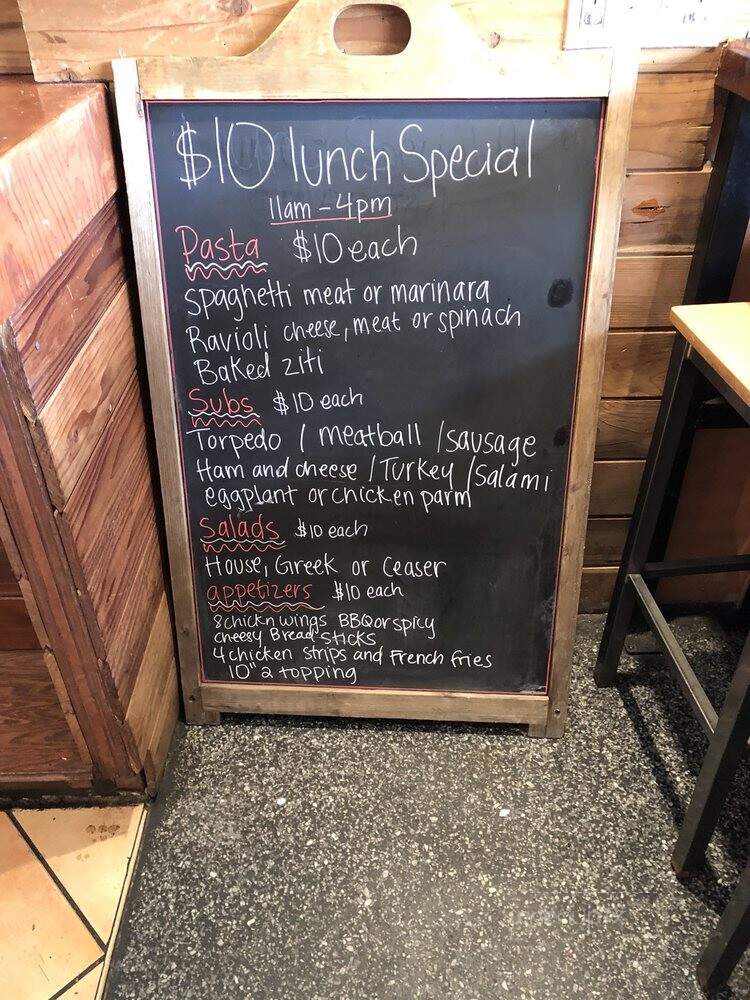 $10 lunch Special
11am - 4pm
Pasta $10 each
spaghetti meat or marinara
Ravioli cheese, meat or spinach
Baked ziti
Subs $10 each
Torpedo / meatball / sausage
Ham and cheese / Turkey / Salami
eggplant or chicken parm
Salads $10 each
House, Greek or Ceaser
appetizers $10 each
8 chickn wings BBQ or spicy
cheesy Bread sticks
4 chicken strips and French fries
10" 2 topping